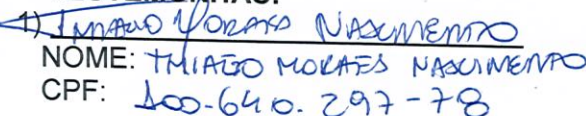 1) THIAGO MORAES NASCIMENTO
NOME: THIAGO MORAES NASCIMENTO
CPF: 100-640.297-78